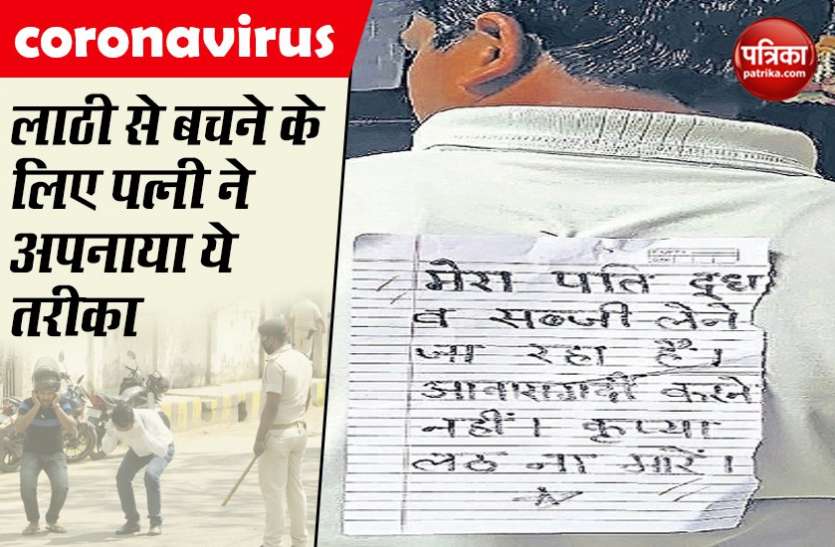 coronavirus
पत्रिका
patrika.com
लाठी से बचने के
लिए पत्नी ने
अपनाया ये
तरीका
मेरा पति दूध
व सब्जी लेने
जा रहा है।
आवारागर्दी करने
नहीं। कृप्या
लठ ना मारें।